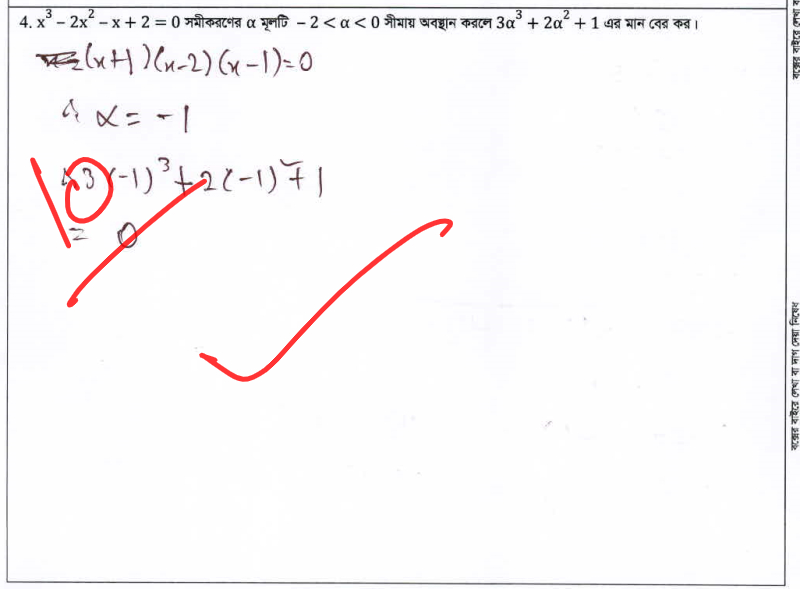 4. x³ − 2x² − x + 2 = 0 সমীকরণের α মূলটি − 2 < α < 0 সীমায় অবস্থান করলে 3α³ + 2α² + 1 এর মান বের কর।
(x+1)(x-2)(x-1)=0
∴ α = -1
∴ 3(-1)³ + 2(-1)² + 1
= 0
বক্সের বাইরে লেখা বা দাগ দেয়া নিষেধ